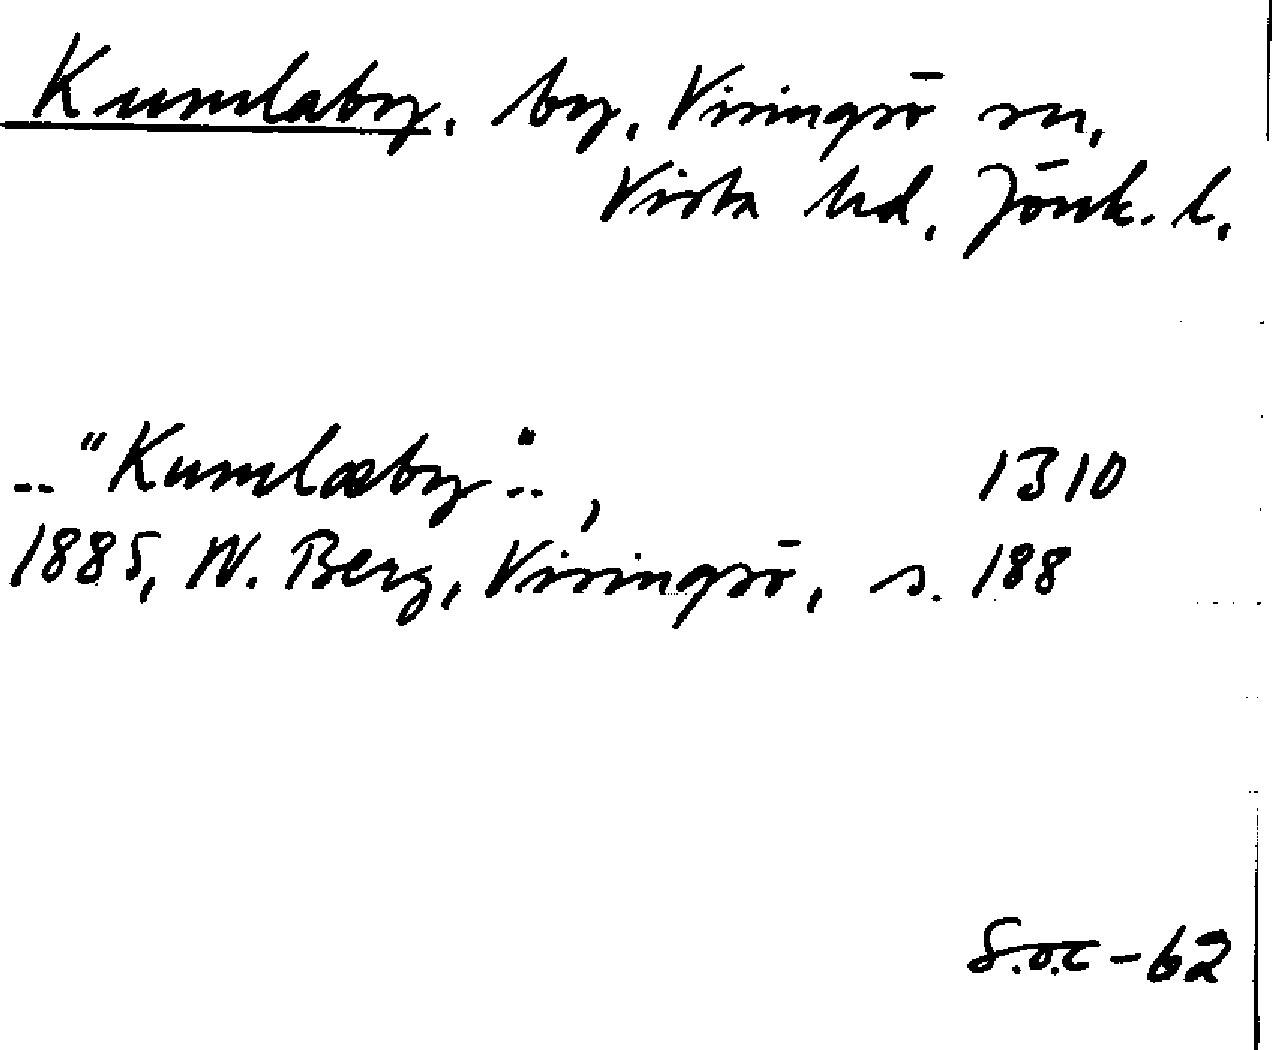 Kumlaby, by, Visingsö sn,
Vista hd, Jönk. l.
.. "Kumlæby" .. , 1310
1885, W. Berg, Visingsö, s. 188
S.O.C -62